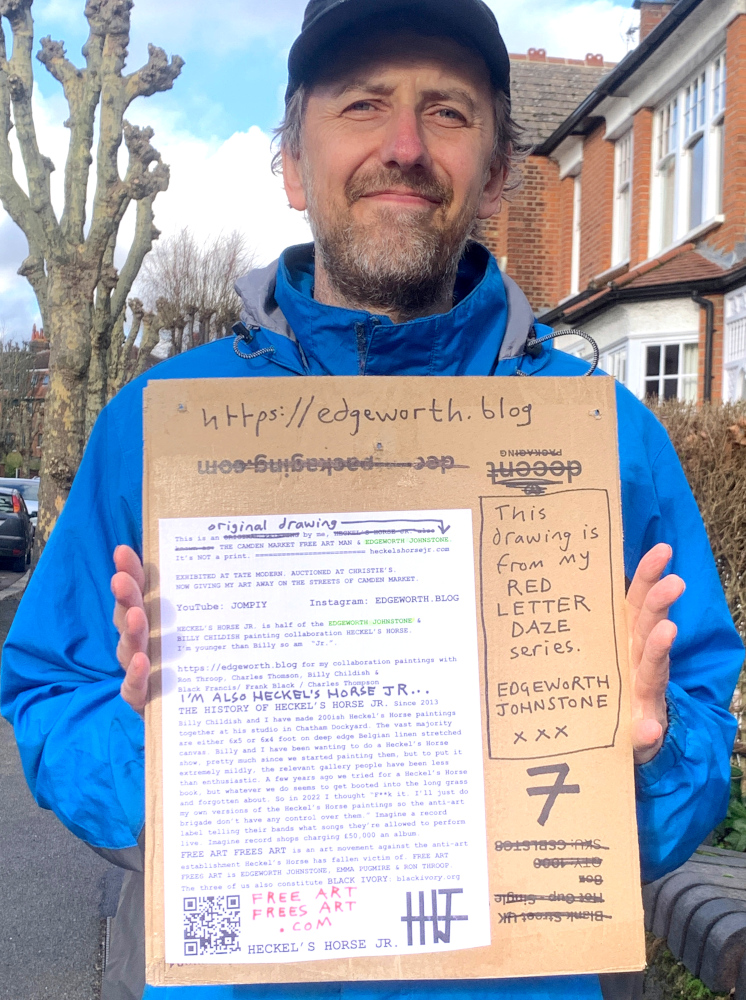 https://edgeworth.blog
decent
PACKAGING
decent-packaging.com
original drawing
This is an by me, HECKEL'S HORSE JR. also
known as THE CAMDEN MARKET FREE ART MAN & EDGEWORTH JOHNSTONE.
It's NOT a print. heckelshorsejr.com
EXHIBITED AT TATE MODERN. AUCTIONED AT CHRISTIE'S.
NOW GIVING MY ART AWAY ON THE STREETS OF CAMDEN MARKET.
YouTube: JOMPIY Instagram: EDGEWORTH.BLOG
HECKEL'S HORSE JR. is half of the EDGEWORTH JOHNSTONE &
BILLY CHILDISH painting collaboration HECKEL'S HORSE.
I'm younger than Billy so am "Jr.".
https://edgeworth.blog for my collaboration paintings with
Ron Throop, Charles Thomson, Billy Childish &
Black Francis/ Frank Black / Charles Thompson
I'M ALSO HECKEL'S HORSE JR...
THE HISTORY OF HECKEL'S HORSE JR. Since 2013
Billy Childish and I have made 200ish Heckel's Horse paintings
together at his studio in Chatham Dockyard. The vast majority
are either 6x5 or 6x4 foot on deep edge Belgian linen stretched
canvas. Billy and I have been wanting to do a Heckel's Horse
show, pretty much since we started painting them, but to put it
extremely mildly, the relevant gallery people have been less
than enthusiastic. A few years ago we tried for a Heckel's Horse
book, but whatever we do seems to get booted into the long grass
and forgotten about. So in 2022 I thought "F**k it. I'll just do
my own versions of the Heckel's Horse paintings so the anti-art
brigade don't have any control over them." Imagine a record
label telling their bands what songs they're allowed to perform
live. Imagine record shops charging £50,000 an album.
FREE ART FREES ART is an art movement against the anti-art
establishment Heckel's Horse has fallen victim of. FREE ART
FREES ART is EDGEWORTH JOHNSTONE, EMMA PUGMIRE & RON THROOP.
The three of us also constitute BLACK IVORY: blackivory.org
FREE ART
FREES ART
.COM
HECKEL'S HORSE JR.
HJ
This
drawing is
from my
RED
LETTER
DAZE
series.
EDGEWORTH
JOHNSTONE
xxx
7
Blank Street UK
Hot Cup - Single
Box
QTY 1000